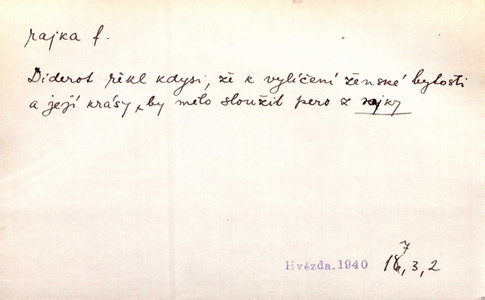 rajka f.
Diderot řekl kdysi, že k vylíčení ženské bytosti
a její krásy by mělo sloužit pero z rajky
Hvězda.1940 18, 3, 2
7